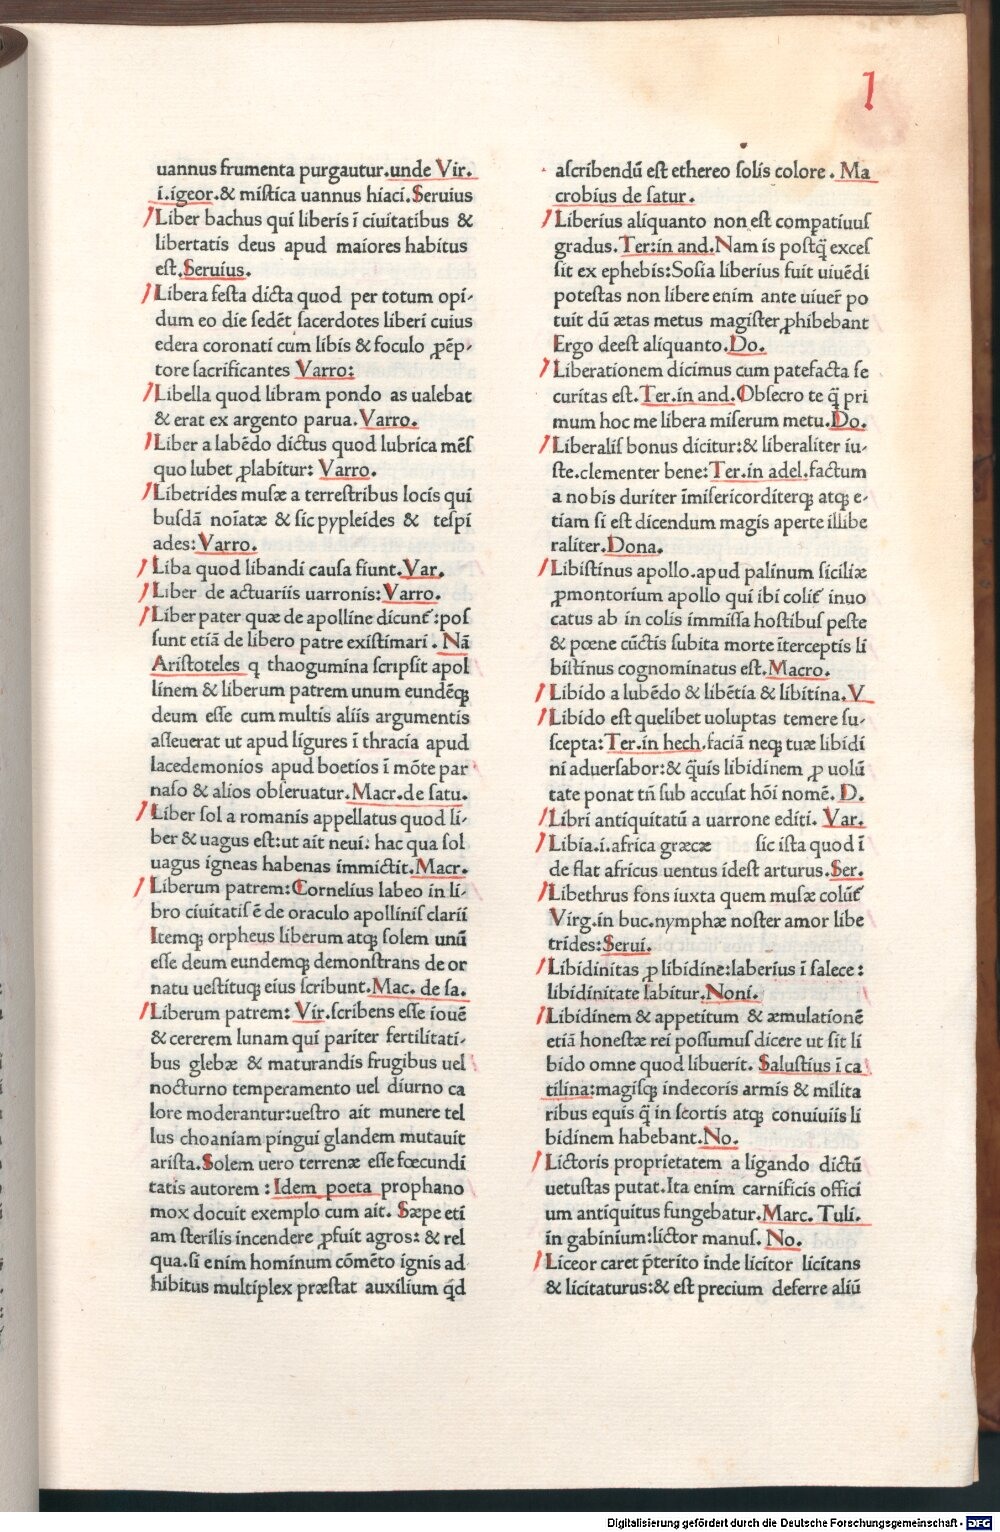 l
uannus frumenta purgautur.unde Vir.
i.igeor.& mistica uannus hiaci.Seruius
Liber bachus qui liberis ī ciuitatibus &
libertatis deus apud maiores habitus
est.Seruius.
Libera festa dicta quod per totum opi-
dum eo die sedēt sacerdotes liberi cuius
edera coronati cum libis & foculo ꝓēp-
tore sacrificantes Varro:
Libella quod libram pondo as ualebat
& erat ex argento parua.Varro.
Liber a labēdo dictus quod lubrica mēs
quo lubet ꝓlabitur: Varro.
Libetrides musæ a terrestribus locis qui
busdā noīatæ & sic pypleides & tespi
ades:Varro.
Liba quod libandi causa fiunt.Var.
Liber de actuariis uarronis:Varro.
Liber pater quæ de apolline dicunt᷑:pos
sunt etiā de libero patre existimari. Nā
Aristoteles q thaogumina scripsit apol
linem & liberum patrem unum eundēqꝫ
deum esse cum multis aliis argumentis
asseuerat ut apud ligures ī thracia apud
lacedemonios apud boetios ī mōte par
naso & alios obseruatur.Macr.de satu.
Liber sol a romanis appellatus quod li-
ber & uagus est:ut ait neui: hac qua sol
uagus igneas habenas immictit.Macr.
Liberum patrem:Cornelius labeo in li-
bro ciuitatis ē de oraculo apollinis clarii
Itemqꝫ orpheus liberum atqꝫ solem unū
esse deum eundemqꝫ demonstrans de or
natu uestituqꝫ eius scribunt.Mac. de sa.
Liberum patrem: Vir.scribens esse iouē
& cererem lunam qui pariter fertilitati-
bus glebæ & maturandis frugibus uel
nocturno temperamento uel diurno ca
lore moderantur:uestro ait munere tel
lus choaniam pingui glandem mutauit
arista.Solem uero terrenæ esse fœcundi
tatis autorem:Idem poeta prophano
mox docuit exemplo cum ait. Sæpe eti
am sterilis incendere ꝓfuit agros: & rel
qua.si enim hominum cōmēto ignis ad
hibitus multiplex præstat auxilium q̄d
ascribendū est ethereo solis colore. Ma
crobius de satur.
Liberius aliquanto non est compatiuus
gradus.Ter:in and.Nam is postq̄ exces
sit ex ephebis:Sosia liberius fuit uiuēdi
potestas non libere enim ante uiuer᷑ po
tuit dū ætas metus magister ꝓhibebant
Ergo deest aliquanto.Do.
Liberationem dicimus cum patefacta se
curitas est.Ter.in and.Obsecro te q̄ pri
mum hoc me libera miserum metu.Do.
Liberalis bonus dicitur:& liberaliter iu-
ste.clementer bene:Ter.in adel.factum
a nobis duriter īmisericorditerqꝫ atqꝫ e-
tiam si est dicendum magis aperte illibe
raliter.Dona.
Libistinus apollo.apud palinum siciliæ
ꝓmontorium apollo qui ibi colit᷑ inuo
catus ab in colis immissa hostibus peste
& pœne cūctis subita morte īterceptis li
bistinus cognominatus est.Macro.
Libido a lubēdo & libētia & libitina.V
Libido est quelibet uoluptas temere su-
scepta:Ter.in hech.faciā neqꝫ tuæ libidi
ni aduersabor:& q̄uis libidinem ꝓ uolū
tate ponat tn̄ sub accusat hōi nomē. D.
Libri antiquitatū a uarrone editi. Var.
Libia.i.africa græcæ sic ista quod ī
de flat africus uentus idest arturus.Ser.
Libethrus fons iuxta quem musæ colūt᷑
Virg.in buc.nymphæ noster amor libe
trides:Serui.
Libidinitas ꝓ libidine:laberius ī salece:
libidinitate labitur.Noni.
Libidinem & appetitum & æmulationē
etiā honestæ rei possumus dicere ut sit li
bido omne quod libuerit. Salustius ī ca
tilina:magisqꝫ indecoris armis & milita
ribus equis q̄ in scortis atqꝫ conuiuiis li
bidinem habebant.No.
Lictoris proprietatem a ligando dictū
uetustas putat.Ita enim carnificis offici
um antiquitus fungebatur.Marc. Tuli.
in gabinium:lictor manus. No.
Liceor caret p̄terito inde licitor licitans
& licitaturus:& est precium deferre aliū
Digitalisierung gefördert durch die Deutsche Forschungsgemeinschaft - DFG